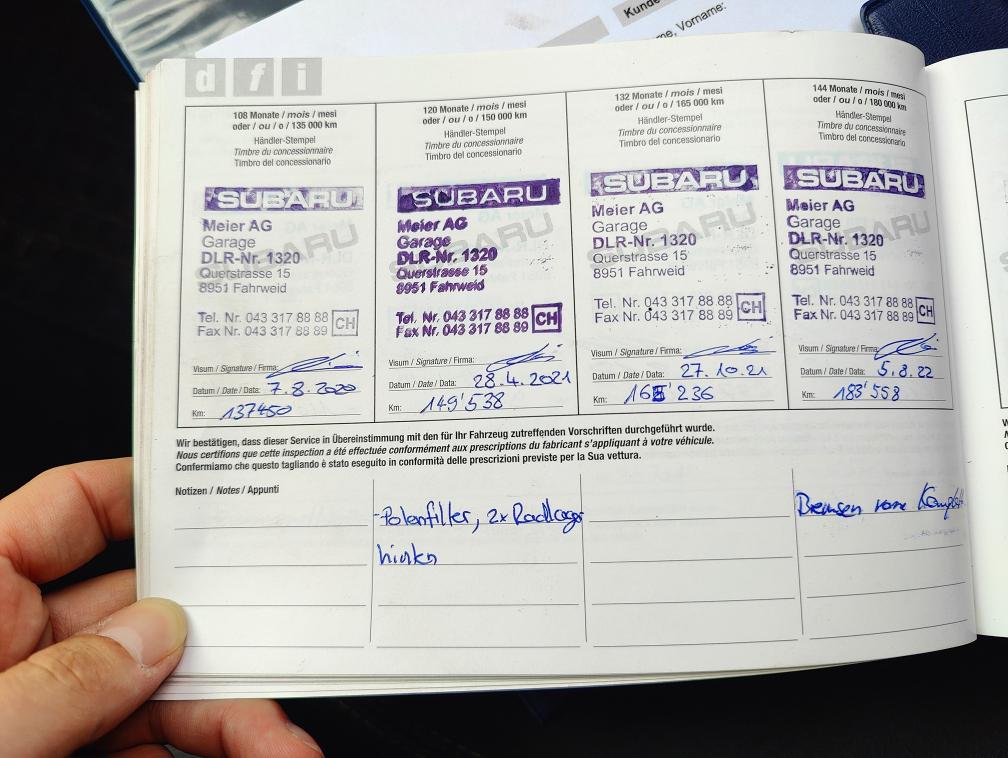 Kunde
me, Vorname:
d f i
108 Monate / mois / mesi
oder / ou / o / 135 000 km
Händler-Stempel
Timbre du concessionnaire
Timbro del concessionario
SUBARU
Meier AG
Garage
DLR-Nr. 1320
Querstrasse 15
8951 Fahrweid
Tel. Nr. 043 317 88 88
Fax Nr. 043 317 88 89
CH
Visum / Signature / Firma:
Datum / Date / Data: 7.8.2020
Km: 137450
120 Monate / mois / mesi
oder / ou / o / 150 000 km
Händler-Stempel
Timbre du concessionnaire
Timbro del concessionario
SUBARU
Meier AG
Garage
DLR-Nr. 1320
Querstrasse 15
8951 Fahrweid
Tel. Nr. 043 317 88 88
Fax Nr. 043 317 88 89
CH
Visum / Signature / Firma:
Datum / Date / Data: 28.4.2021
Km: 149'538
132 Monate / mois / mesi
oder / ou / o / 165 000 km
Händler-Stempel
Timbre du concessionnaire
Timbro del concessionario
SUBARU
Meier AG
Garage
DLR-Nr. 1320
Querstrasse 15
8951 Fahrweid
Tel. Nr. 043 317 88 88
Fax Nr. 043 317 88 89
CH
Visum / Signature / Firma:
Datum / Date / Data: 27.10.21
Km: 165 236
144 Monate / mois / mesi
oder / ou / o / 180 000 km
Händler-Stempel
Timbre du concessionnaire
Timbro del concessionario
SUBARU
Meier AG
Garage
DLR-Nr. 1320
Querstrasse 15
8951 Fahrweid
Tel. Nr. 043 317 88 88
Fax Nr. 043 317 88 89
CH
Visum / Signature / Firma:
Datum / Date / Data: 5.8.22
Km: 183'558
Wir bestätigen, dass dieser Service in Übereinstimmung mit den für Ihr Fahrzeug zutreffenden Vorschriften durchgeführt wurde.
Nous certifions que cette inspection a été effectuée conformément aux prescriptions du fabricant s'appliquant à votre véhicule.
Confermiamo che questo tagliando è stato eseguito in conformità delle prescrizioni previste per la Sua vettura.
Notizen / Notes / Appunti
-Polenfilter, 2x Radlager
hinten
Bremsen vorne Komplett